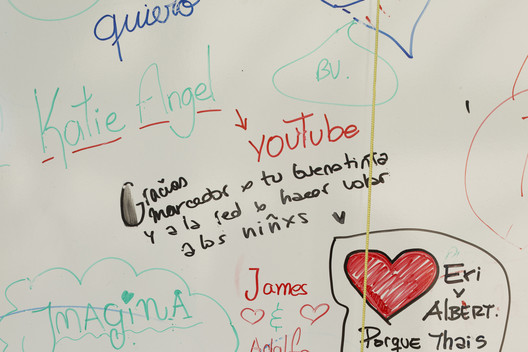 quiero
BV.
Katie Angel
youtube
Gracias
marcador x tu buenatinta
y a la red x hacer volar
a los niñxs
ImAginA
James
&
Adolfo
Eri
y
ALBERT.
Porque Thais